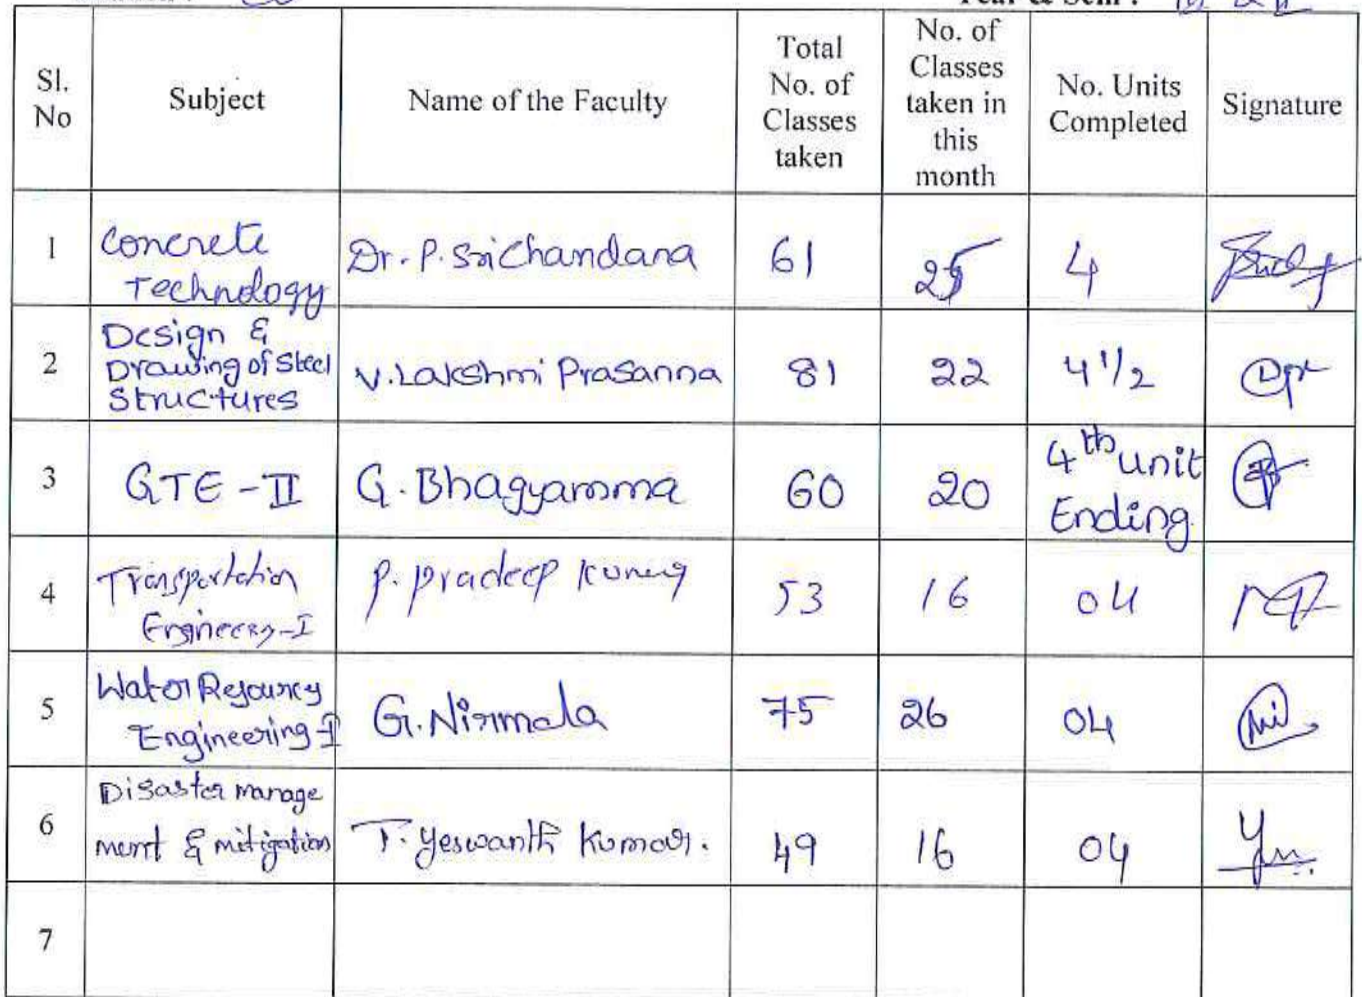 Year & Sem :
Sl. No Subject Name of the Faculty Total No. of Classes taken No. of Classes taken in this month No. Units Completed Signature
1 Concrete Technology Dr. P. SriChandana 61 25 4
2 Design & Drawing of Steel Structures V. Lakshmi Prasanna 81 22 4 1/2
3 GTE - II G. Bhagyamma 60 20 4th unit Ending
4 Transportation Engineering-I P. Pradeep Kumar 53 16 04
5 Water Resources Engineering-I G. Nirmala 75 26 04
6 Disaster manage ment & mitigation T. Yeswanth Kumar. 49 16 04
7